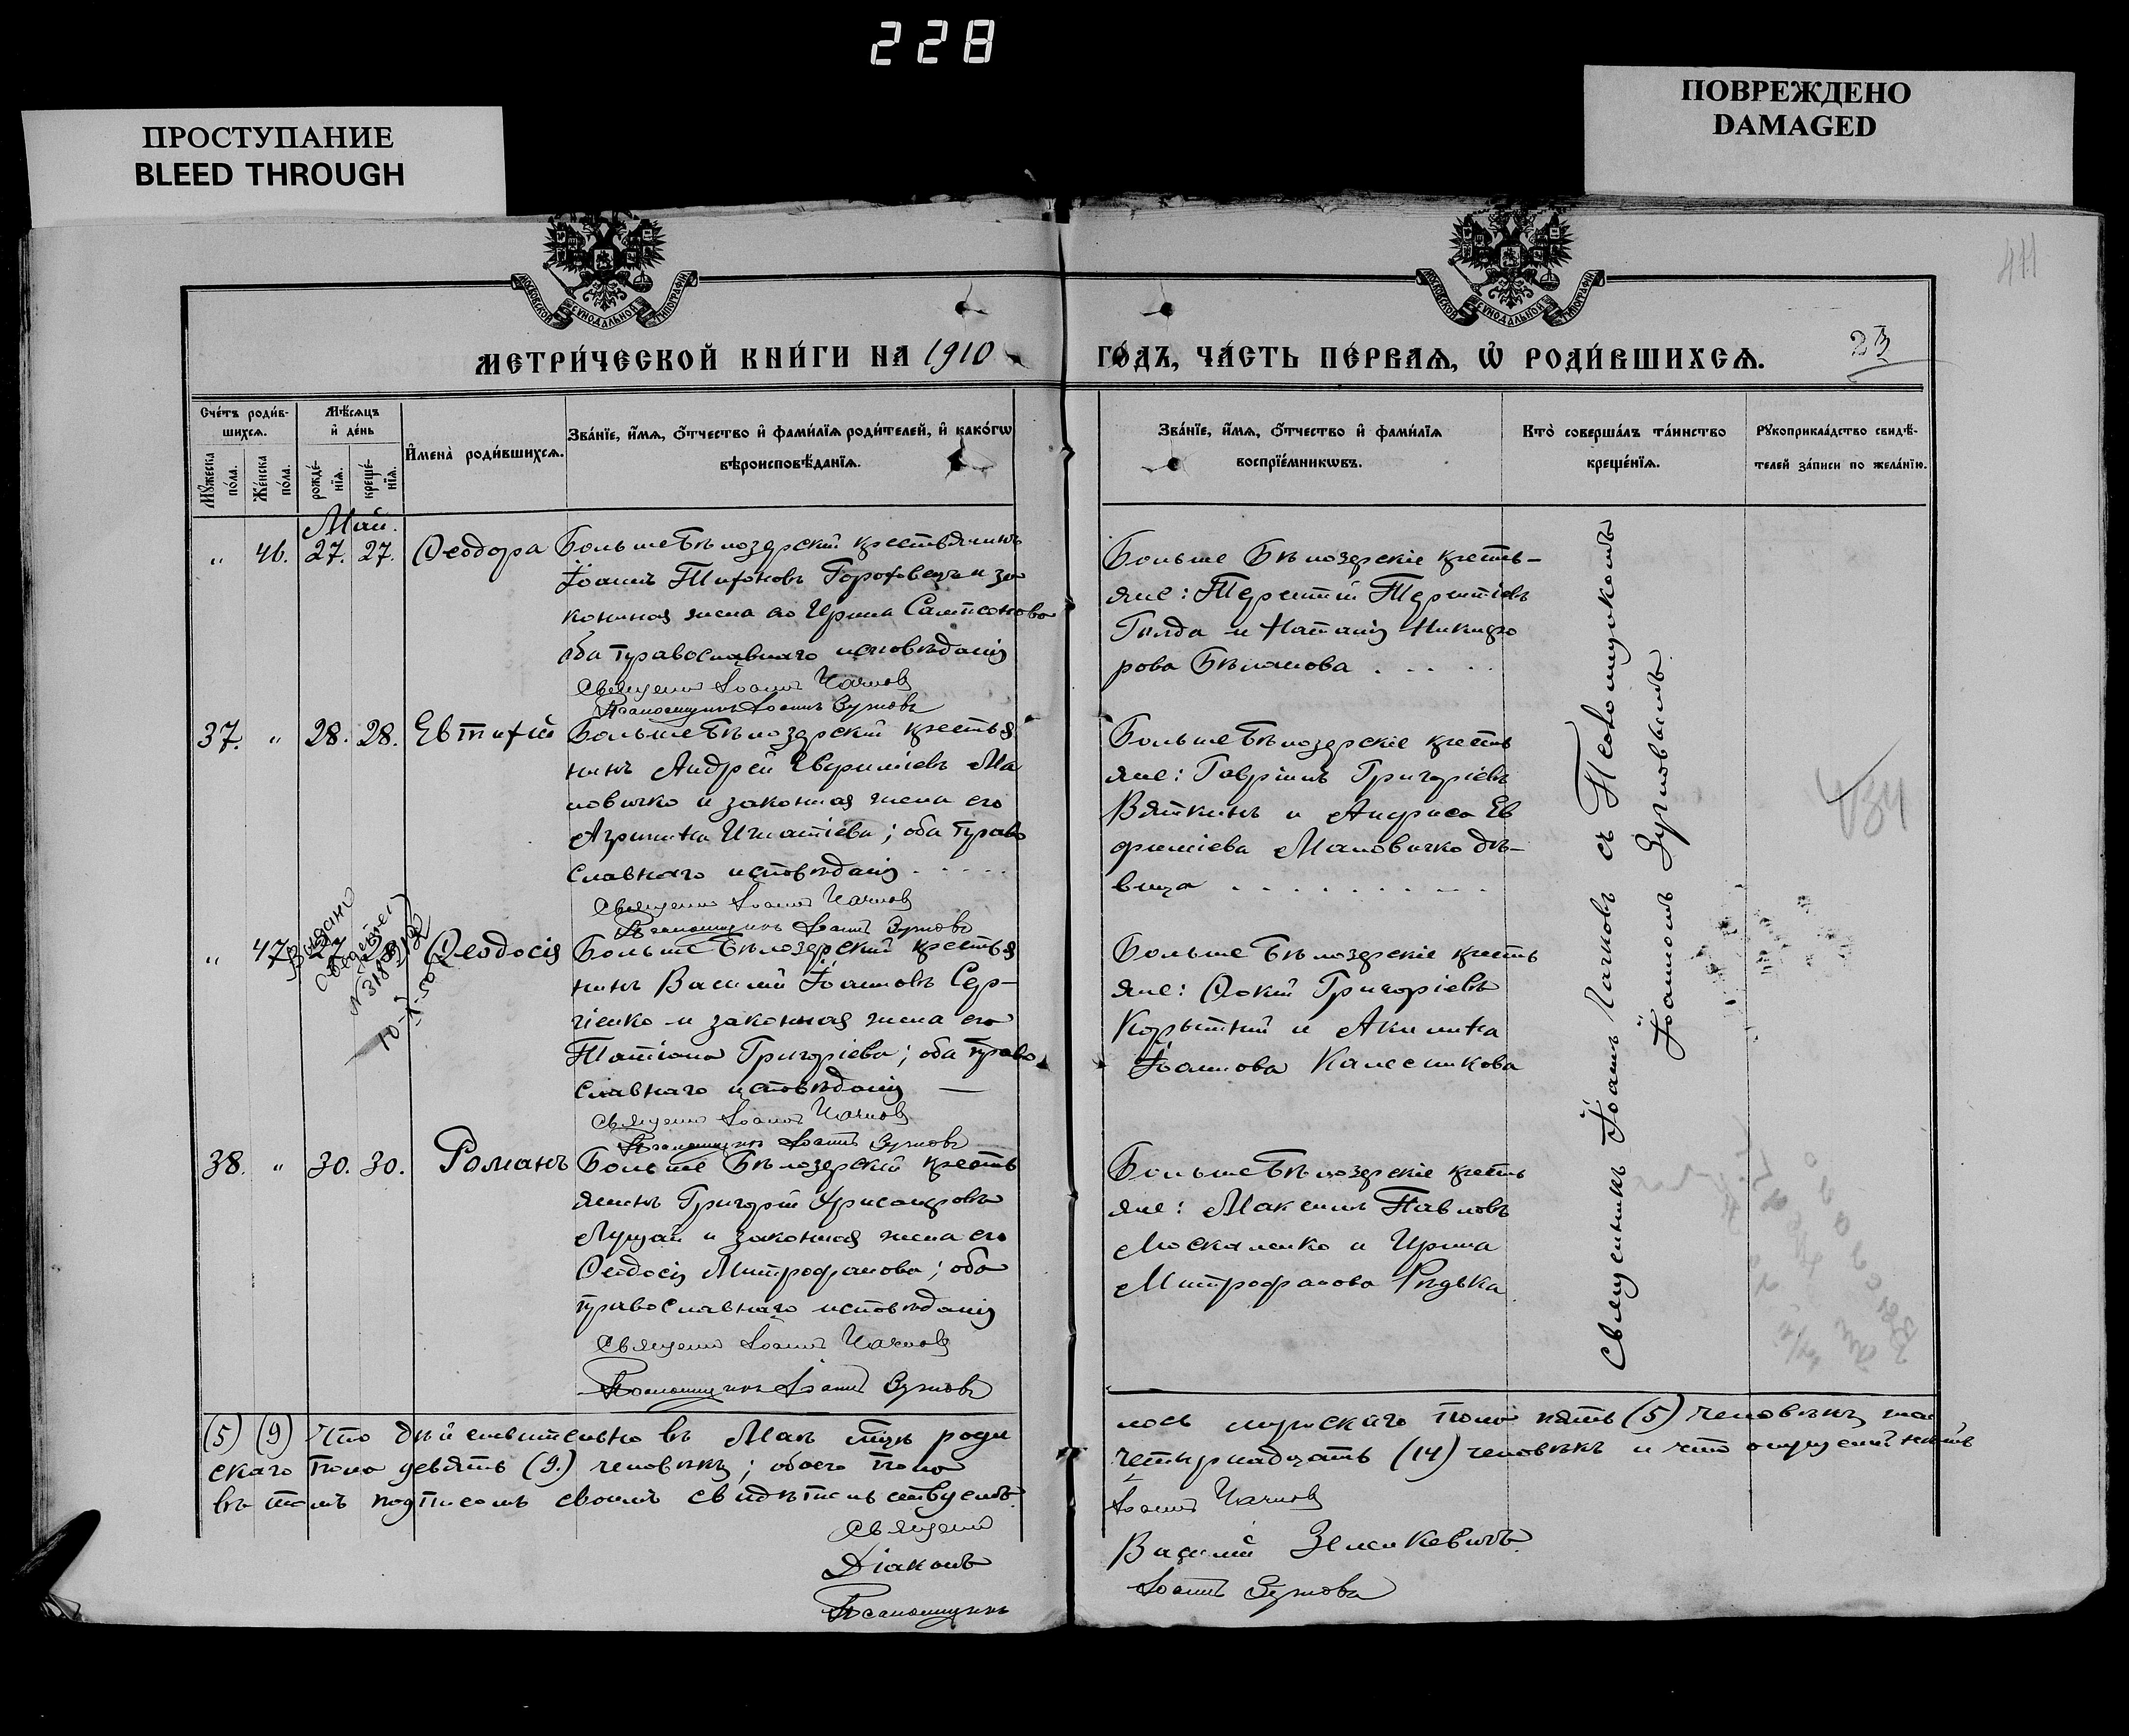 228
ПРОСТУПАНИЕ
BLEED THROUGH
ПОВРЕЖДЕНО
DAMAGED
411
МОСКОВСКОЙ СѴНОДАЛЬНОЙ ТИПОГРАФІИ
МОСКОВСКОЙ СѴНОДАЛЬНОЙ ТИПОГРАФІИ
МЕТРИ́ЧЕСКОЙ КНИ́ГИ НА 1910
ГО́ДЪ, ЧА́СТЬ ПЕ́РВАѦ, Ѡ҆ РОДИ́ВШИХСѦ.
23
Сче́тъ роди́в-
шихсѧ.
Мѣ́сѧцъ
и҆ де́нь
Мꙋ́жеска по́ла.
Же́нска по́ла.
рожде́-нїѧ.
креще́-нїѧ.
И҆мена̀ роди́вшихсѧ.
Зва́нїе, и҆́мѧ, ѻ҆́тчество и҆ фами́лїѧ роди́телей, и҆ како́гѡ
вѣроисповѣ́данїѧ.
Зва́нїе, и҆́мѧ, ѻ҆́тчество и҆ фами́лїѧ
воспрїе́мникѡвъ.
Кто̀ соверша́лъ та́инство
креще́нїѧ.
Рꙋкоприкла́дство свидѣ́-
телей за́писи по жела́нїю.
Май.
" 46. 27. 27. Ѳеодора
БольшеБѣлозерскій крестьянинъ
Іоаннъ Тихоновъ Гороховецъ и за
конная жена его Ирина Сампсонова
оба православнаго исповѣданія
Священн Іоаннъ Чачковъ
Псаломщикъ Іоаннъ Зумовъ
Больше Бѣлозерскіе кресть-
яне: Терентій Терентіевъ
Гылда и Наталія Никифо
рова Бѣланова . . . .
37. " 28. 28. Евтихій
БольшеБѣлозерскій крестья
нинъ Андрей Евфиміевъ Ма
новичко и законная жена его
Агрипина Игнатіева; оба право
славнаго исповѣданія . . . . .
Священн Іоаннъ Чачковъ
Псаломщикъ Іоаннъ Зумовъ
БольшеБѣлозерскіе кресть
яне: Гавріилъ Григоріевъ
Вяткинъ и Анфиса Ев
фиміева Мановичко дѣ-
вица . . . . . . . . . .
" 47. 27. 28. Ѳеодосія
Больше Бѣлозерскій крестья
нинъ Василій Іоанновъ Сер-
гіенко и законная жена его
Татіана Григоріева; оба право
славнаго исповѣданія —
Священн Іоаннъ Чачковъ
Псаломщикъ Іоаннъ Зумовъ
Больше Бѣлозерскіе кресть
яне: Ѳокій Григоріевъ
Корытній и Акилина
Іоаннова Калесникова
38. " 30. 30. Романъ
Больше Бѣлозерскій кресть
янинъ Григорій Хрисанфовъ
Луцай и законная жена его
Ѳеодосія Митрофанова; оба
православнаго исповѣданія
Священн Іоаннъ Чачковъ
Псаломщикъ Іоаннъ Зумовъ
БольшеБѣлозерскіе кресть
яне: Максимъ Павловъ
Москаленко и Ирина
Митрофанова Рѣдька
Священникъ Іоаннъ Чачковъ съ Псаломщикомъ
Іоанномъ Зумовымъ
(5) (9) Что дѣйствительно въ Маѣ мѣсяцѣ роди
лось мужскаго пола пять (5) человѣкъ, жен
скаго пола девять (9.) человѣкъ; обоего пола
четырнадцать (14) человѣкъ и что опущеній нѣтъ
въ томъ подписомъ своимъ свидѣтельствуемъ.
Священн Іоаннъ Чачковъ
Діаконъ Василій Зенкевичъ.
Псаломщикъ Іоаннъ Зумовъ